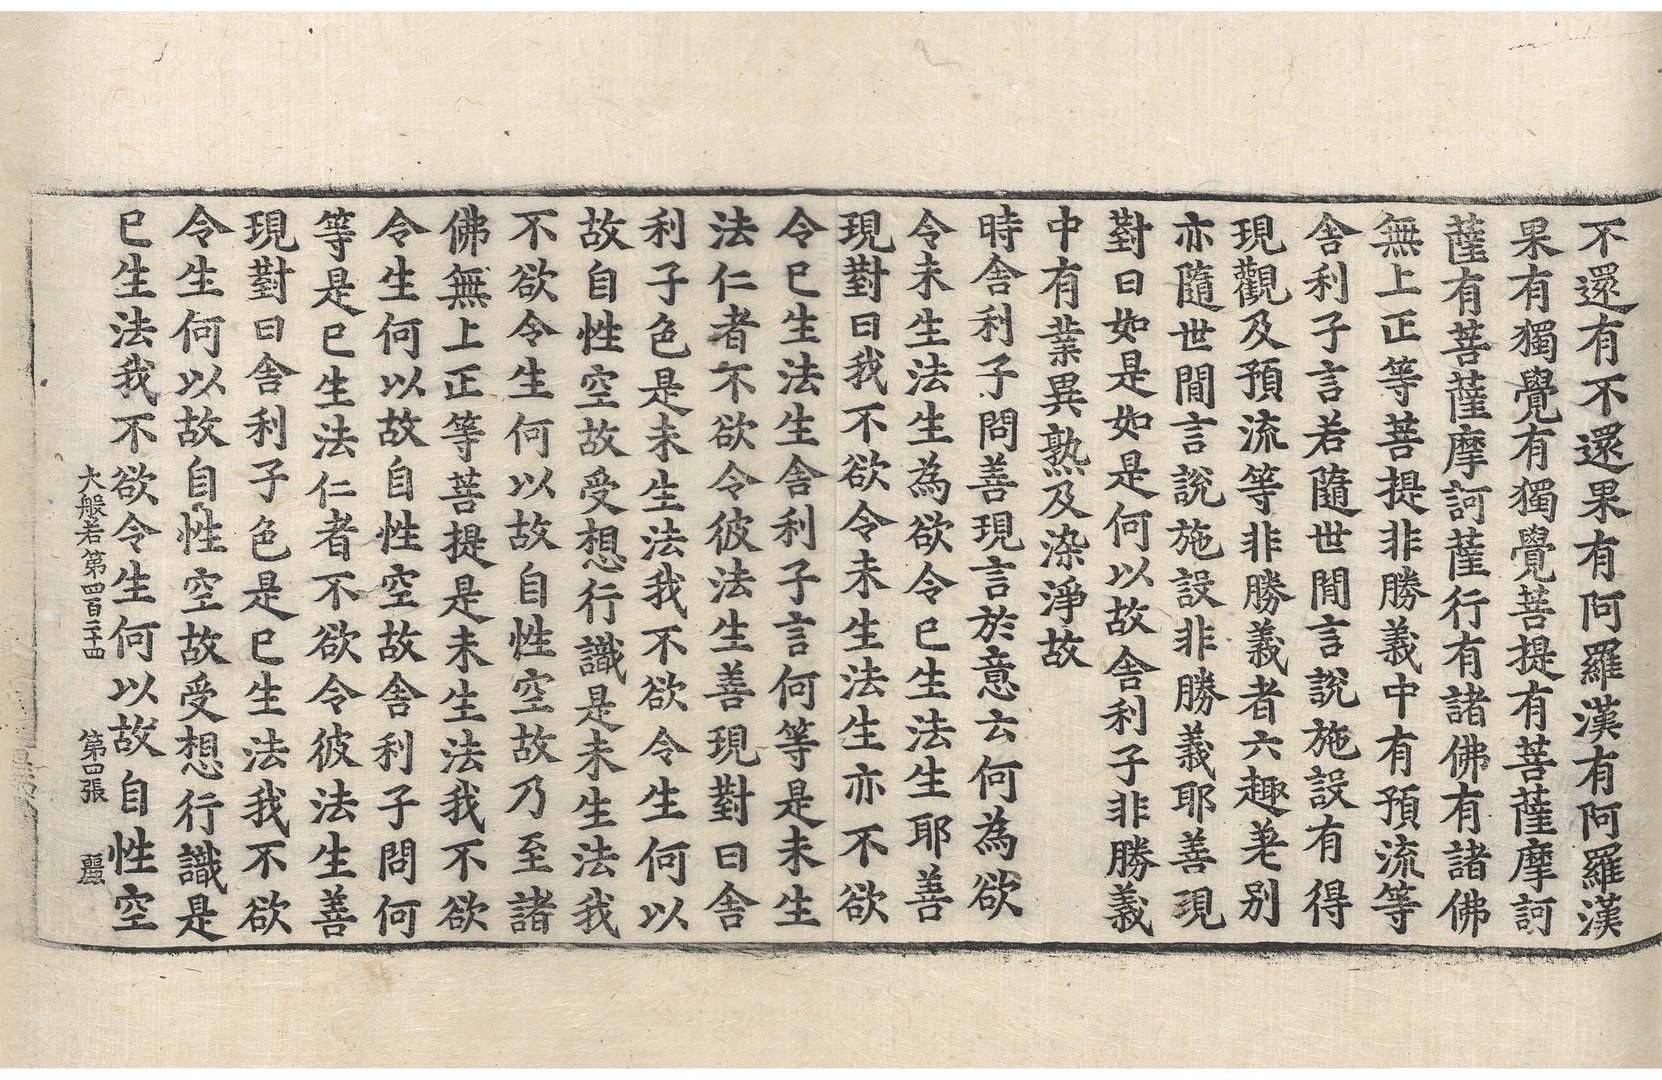 不還有不還果有阿羅漢有阿羅漢
果有獨覺有獨覺菩提有菩薩摩訶
薩有菩薩摩訶薩行有諸佛有諸佛
無上正等菩提非勝義中有預流等
舍利子言若隨世間言說施設有得
現觀及預流等非勝義者六趣差別
亦隨世間言說施設非勝義耶善現
對曰如是如是何以故舍利子非勝義
中有業異熟及染淨故
時舍利子問善現言於意云何為欲
令未生法生為欲令已生法生耶善
現對曰我不欲令未生法生亦不欲
令已生法生舍利子言何等是未生
法仁者不欲令彼法生善現對曰舍
利子色是未生法我不欲令生何以
故自性空故受想行識是未生法我
不欲令生何以故自性空故乃至諸
佛無上正等菩提是未生法我不欲
令生何以故自性空故舍利子問何
等是已生法仁者不欲令彼法生善
現對曰舍利子色是已生法我不欲
令生何以故自性空故受想行識是
已生法我不欲令生何以故自性空
大般若第四百二十四 第四張 麗